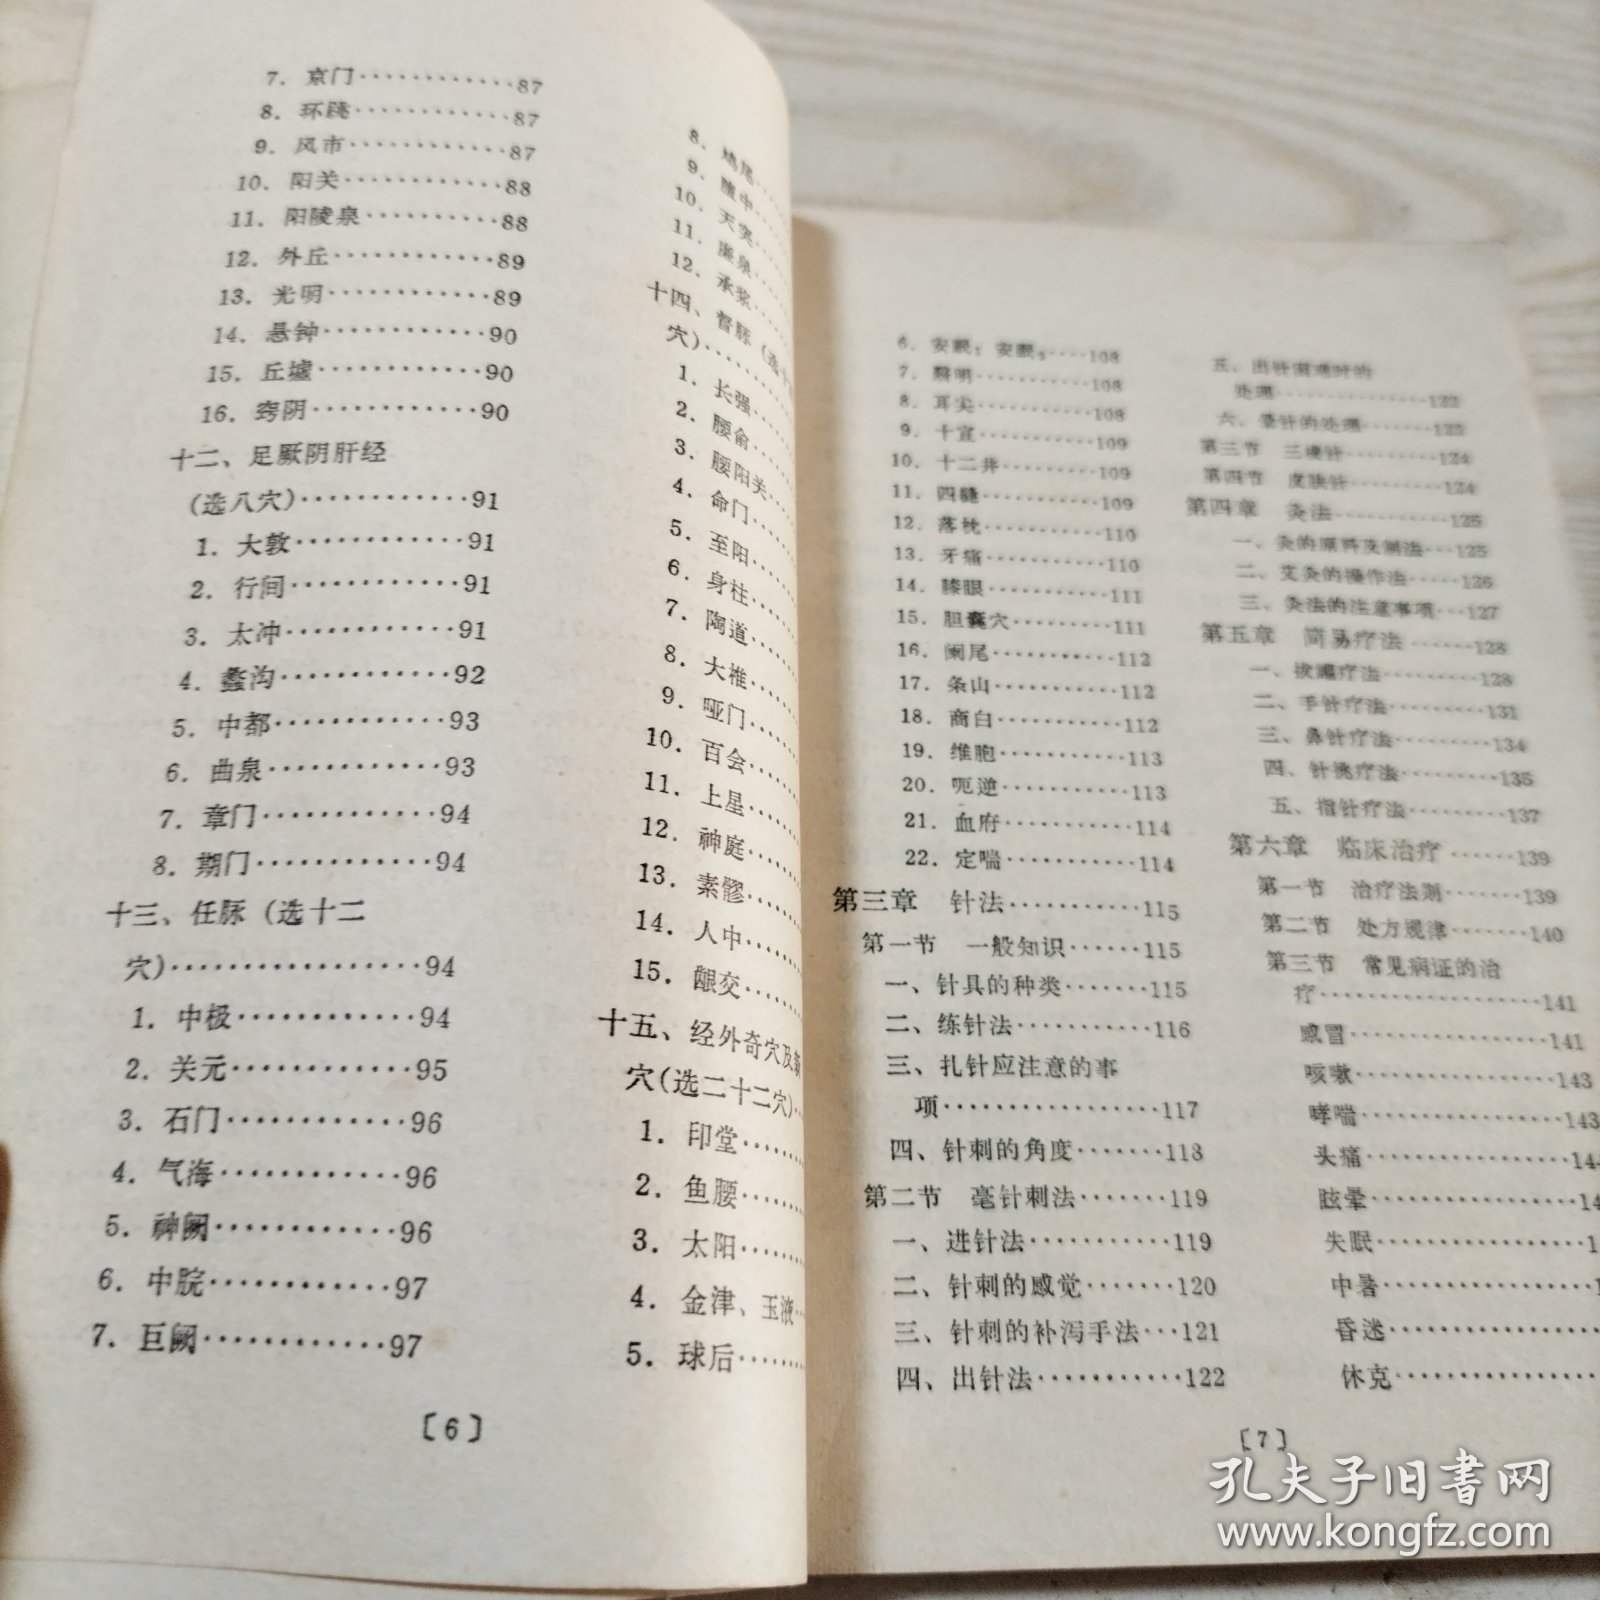 7. 京门············87
8. 环跳············87
9. 风市············87
10. 阳关············88
11. 阳陵泉··········88
12. 外丘············89
13. 光明············89
14. 悬钟············90
15. 丘墟············90
16. 窍阴············90
十二、足厥阴肝经
(选八穴)············91
1. 大敦············91
2. 行间············91
3. 太冲············91
4. 蠡沟············92
5. 中都············93
6. 曲泉············93
7. 章门············94
8. 期门············94
十三、任脉 (选十二
穴)·················94
1. 中极············94
2. 关元············95
3. 石门············96
4. 气海············96
5. 神阙············96
6. 中脘············97
7. 巨阙············97
8. 鸠尾
9. 膻中
10. 天突
11. 廉泉
12. 承浆
十四、督脉 (选十
穴)
1. 长强
2. 腰俞
3. 腰阳关
4. 命门
5. 至阳
6. 身柱
7. 陶道
8. 大椎
9. 哑门
10. 百会
11. 上星
12. 神庭
13. 素髎
14. 人中
15. 龈交
十五、经外奇穴及新
穴(选二十二穴)
1. 印堂
2. 鱼腰
3. 太阳
4. 金津、玉液
5. 球后
〔6〕
6. 安眠₁ 安眠₂····108
7. 翳明···········108
8. 耳尖···········108
9. 十宣···········109
10. 十二井·········109
11. 四缝···········109
12. 落枕···········110
13. 牙痛···········110
14. 膝眼···········111
15. 胆囊穴·········111
16. 阑尾···········112
17. 条山···········112
18. 商白···········112
19. 维胞···········113
20. 呃逆···········113
21. 血府···········114
22. 定喘···········114
第三章 针法···········115
第一节 一般知识······115
一、针具的种类·······115
二、练针法···········116
三、扎针应注意的事
项·················117
四、针刺的角度·······118
第二节 毫针刺法·······119
一、进针法···········119
二、针刺的感觉·······120
三、针刺的补泻手法···121
四、出针法···········122
五、出针困难时的
处理···············122
六、晕针的处理·······123
第三节 三棱针·········124
第四节 皮肤针·········124
第四章 灸法···········125
一、灸的原料及制法···125
二、艾灸的操作法·····126
三、灸法的注意事项···127
第五章 简易疗法·······128
一、拔罐疗法·········128
二、手针疗法·········131
三、鼻针疗法·········134
四、针挑疗法·········135
五、指针疗法·········137
第六章 临床治疗······139
第一节 治疗法则·······139
第二节 处方规律·······140
第三节 常见病证的治
疗···················141
感冒·················141
咳嗽·················143
哮喘·················143
头痛·················14
眩晕·················14
失眠·················1
中暑·················1
昏迷·················
休克·················
〔7〕
孔夫子旧书网
www.kongfz.com